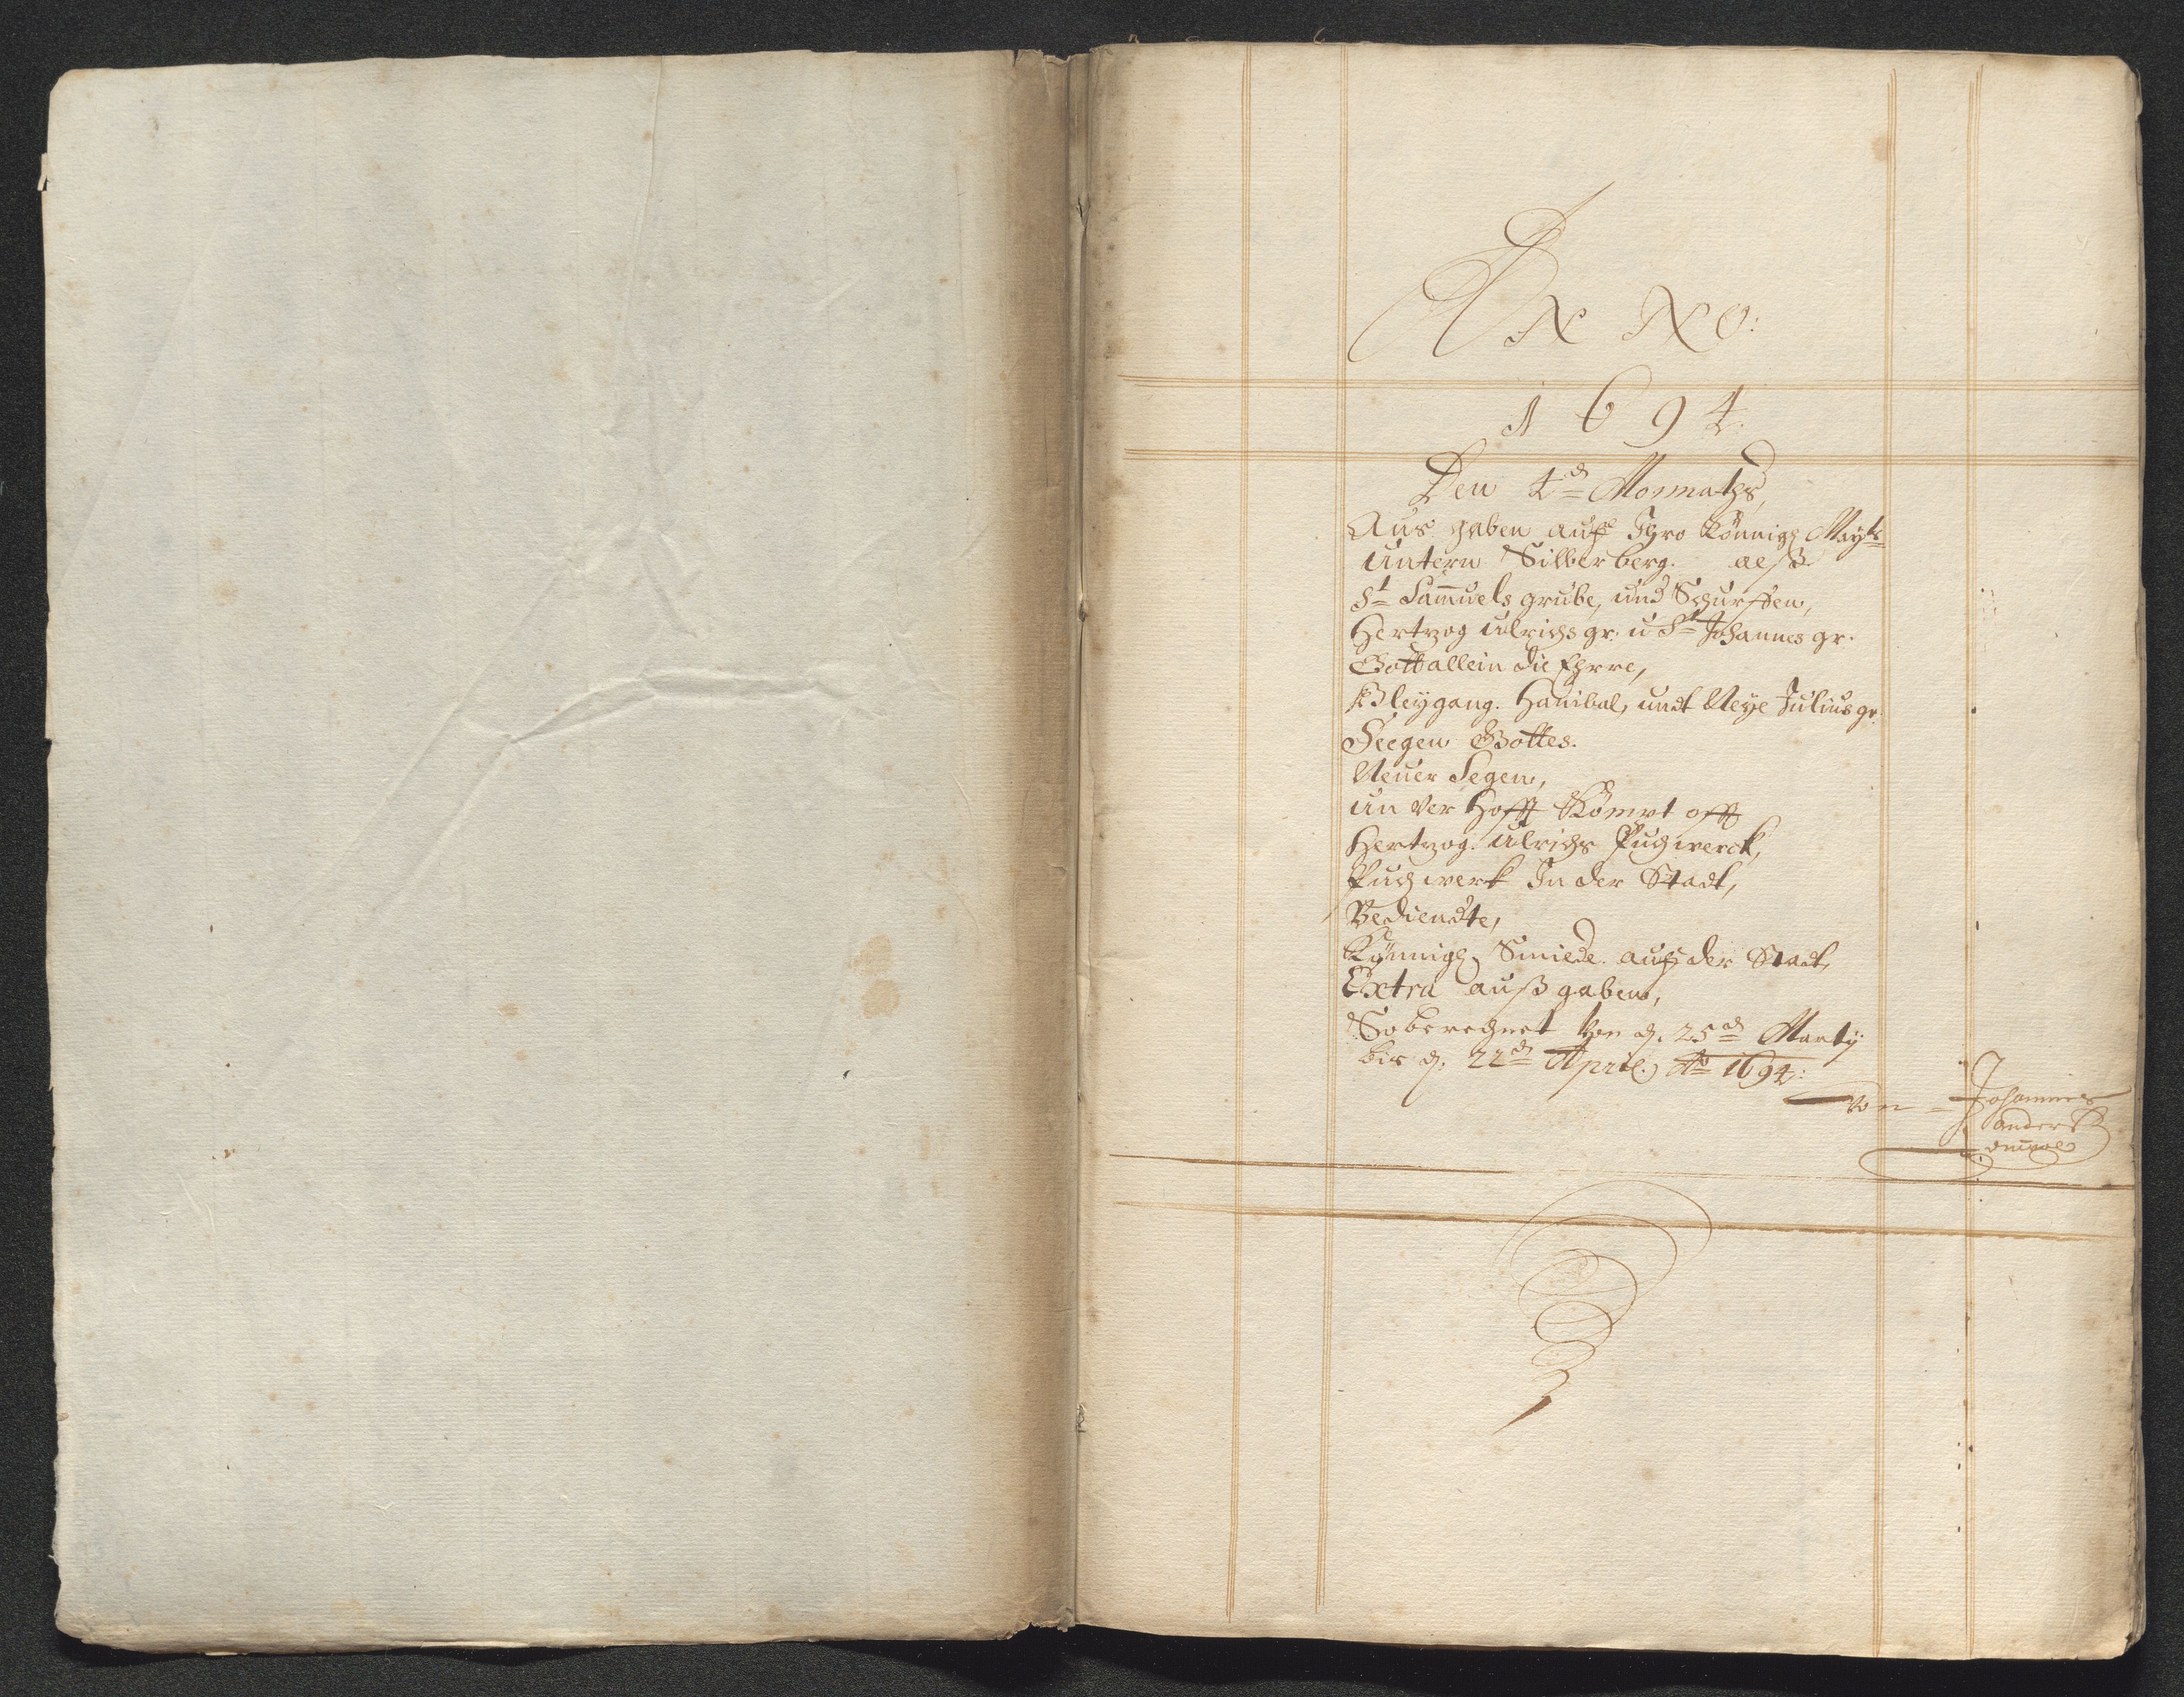 AN NO:
1694.
Den 4d Monnaths,
Aus gaben auff Ihro Könnigl Mayts
Untern Silberberg. alß.
St Sam̄uels grube, und Schurffen,
Hertzog Ulrichs gr. u St Johannes gr.
Gott allein die Ehrre,
Bleygang. Hanibal, undt Neye Julius gr.
Seegen Gottes.
Neuer Segen,
un ver Hofft Kömpt offt
Hertzog. Ulrichs Puchwerck,
Puchwerk In der Stadt,
Bediendte,
Königl. Smiede. auff der Stadt,
Extra außgaben,
So berechnet von d. 25d Marty
bis d. 22d April. Ao 1694:
Von Johannes
Anders